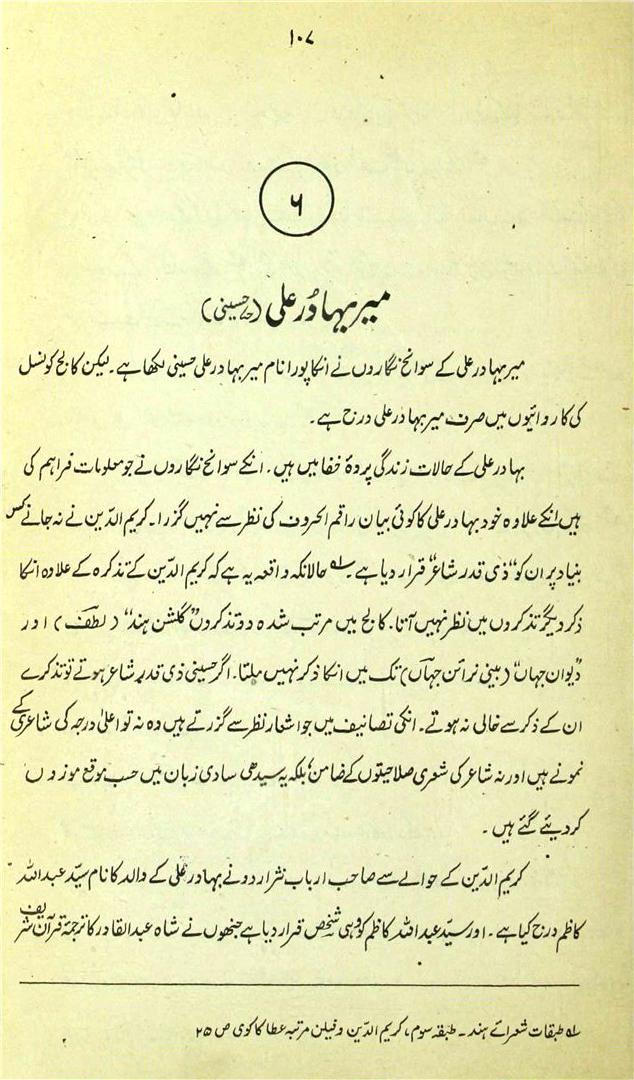 ۱۰۷
۶
میر بہادُر علی (حسینی)
میر بہادر علی کے سوانح نگاروں نے انکا پورا نام میر بہادر علی حسینی لکھا ہے۔ لیکن کالج کونسل
کی کاروائیوں میں صرف میر بہادر علی درج ہے۔
بہادر علی کے حالات زندگی پردۂ خفا میں ہیں۔ انکے سوانح نگاروں نے جو معلومات فراہم کی
ہیں انکے علاوہ خود بہادر علی کا کوئی بیان راقم الحروف کی نظر سے نہیں گزرا۔ کریم الدّین نے نہ جانے کس
بنیاد پر ان کو "ذی قدر شاعر" قرار دیا ہے۔ لہ حالانکہ واقعہ یہ ہے کہ کریم الدّین کے تذکرہ کے علاوہ انکا
ذکر دیگر تذکروں میں نظر نہیں آتا۔ کالج میں مرتب شدہ دو تذکروں "گلشن ہند" (لطف) اور
"دیوان جہاں" (بینی نرائن جہاں) تک میں انکا ذکر نہیں ملتا۔ اگر حسینی ذی قدر شاعر ہوتے تو تذکرے
ان کے ذکر سے خالی نہ ہوتے۔ انکی تصانیف میں جو اشعار نظر سے گزرتے ہیں وہ نہ تو اعلیٰ درجہ کی شاعری کے
نمونے ہیں اور نہ شاعر کی شعری صلاحیتوں کے ضامن، بلکہ یہ سیدھی سادی زبان میں حسب موقع موزوں
کر دیئے گئے ہیں۔
کریم الدّین کے حوالے سے صاحب ارباب نثر اردو نے بہادر علی کے والد کا نام سیّد عبد اللہ
کاظم درج کیا ہے۔ اور سیّد عبد اللہ کاظم کو وہی شخص قرار دیا ہے جنھوں نے شاہ عبد القادر کا ترجمۂ قرآن شریف
لہ طبقات شعرائے ہند۔ طبقہ سوم، کریم الدّین و فیلن مرتبہ عطا کاکوی ص ۲۵